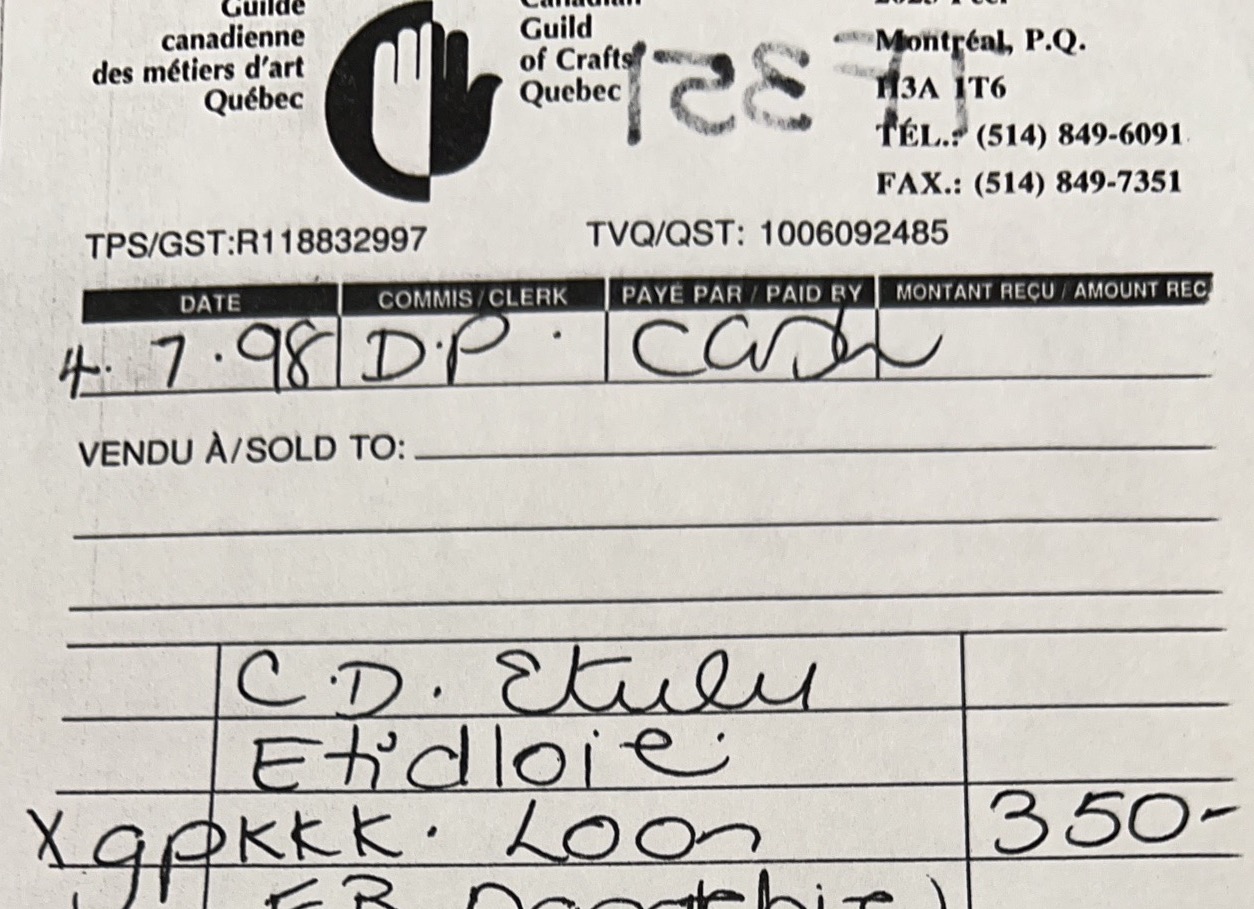 Guilde
canadienne
des métiers d'art
Québec
Canadian
Guild
of Crafts
Quebec
Montréal, P.Q.
H3A 1T6
TÉL.: (514) 849-6091
FAX.: (514) 849-7351
TPS/GST:R118832997 TVQ/QST: 1006092485
DATE COMMIS/CLERK PAYÉ PAR / PAID BY MONTANT REÇU / AMOUNT REC
4. 7. 98 D.P. Cash
VENDU À/SOLD TO:
C.D. Etulu
Etidloie.
Xgpkkk. Loon 350-